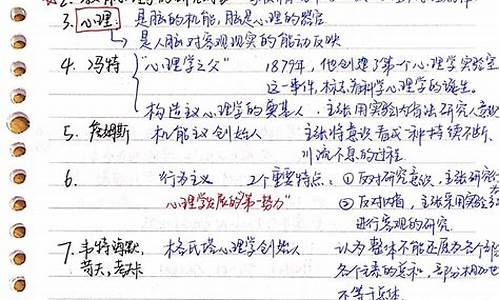 3. 心理：是脑的机能，脑是心理的器官
是人脑对客观现实的能动反映
4. 冯特 "心理学之父" 1879年，他创建了第一个心理学实验室
这一事件，标志着科学心理学的诞生。
构造主义心理学的奠基人，主张用实验内省法研究人意识
5. 詹姆斯 机能主义创始人 主张将意识看成一种持续不断、
川流不息的过程.
6. 行为主义 2个重要特点：①反对研究意识，主张研究
心理学发展的"第一势力" ②反对内省，主张采用实验
进行客观的研究.
7. 韦特海默、 格氏塔心理学创始人 认为整体不能还原为各个部
苛夫、考夫卡 各个元素的总和，部分相加
不等于整体